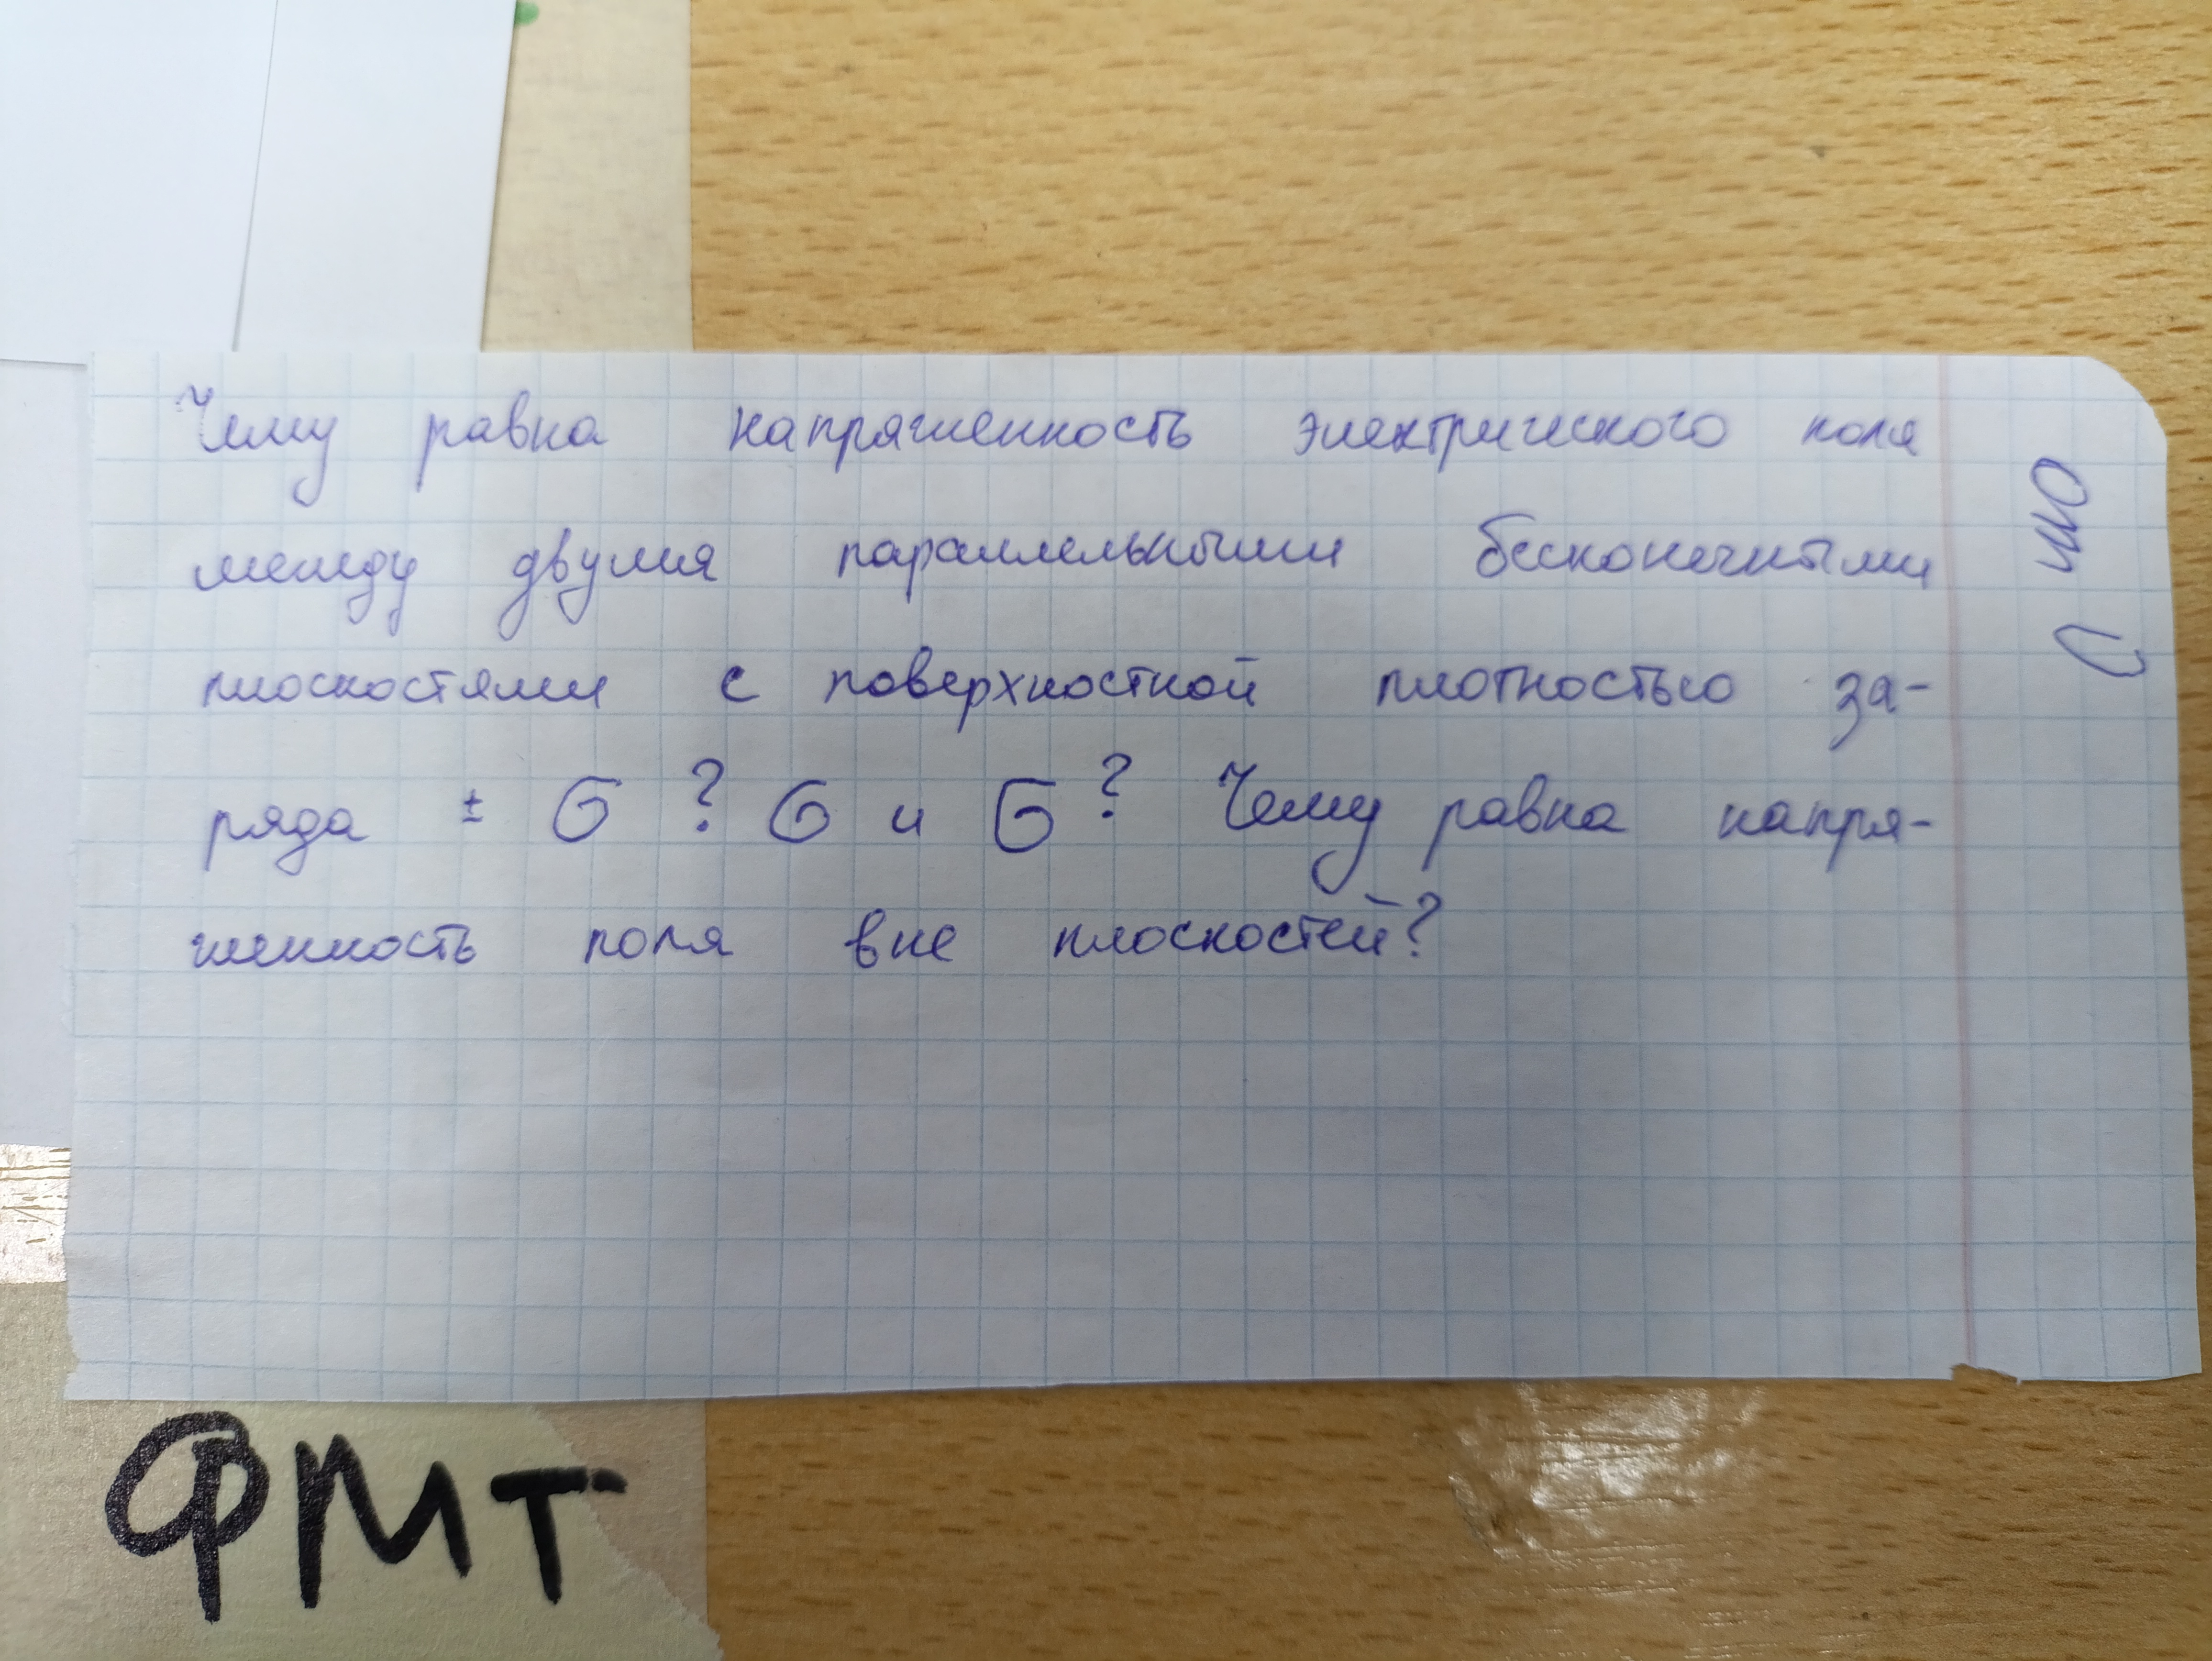 Чему равна напряженность электрического поля
между двумя параллельными бесконечными
плоскостями с поверхностной плотностью за-
ряда ± σ ? σ и σ ? Чему равна напря-
женность поля вне плоскостей?
ФМТ